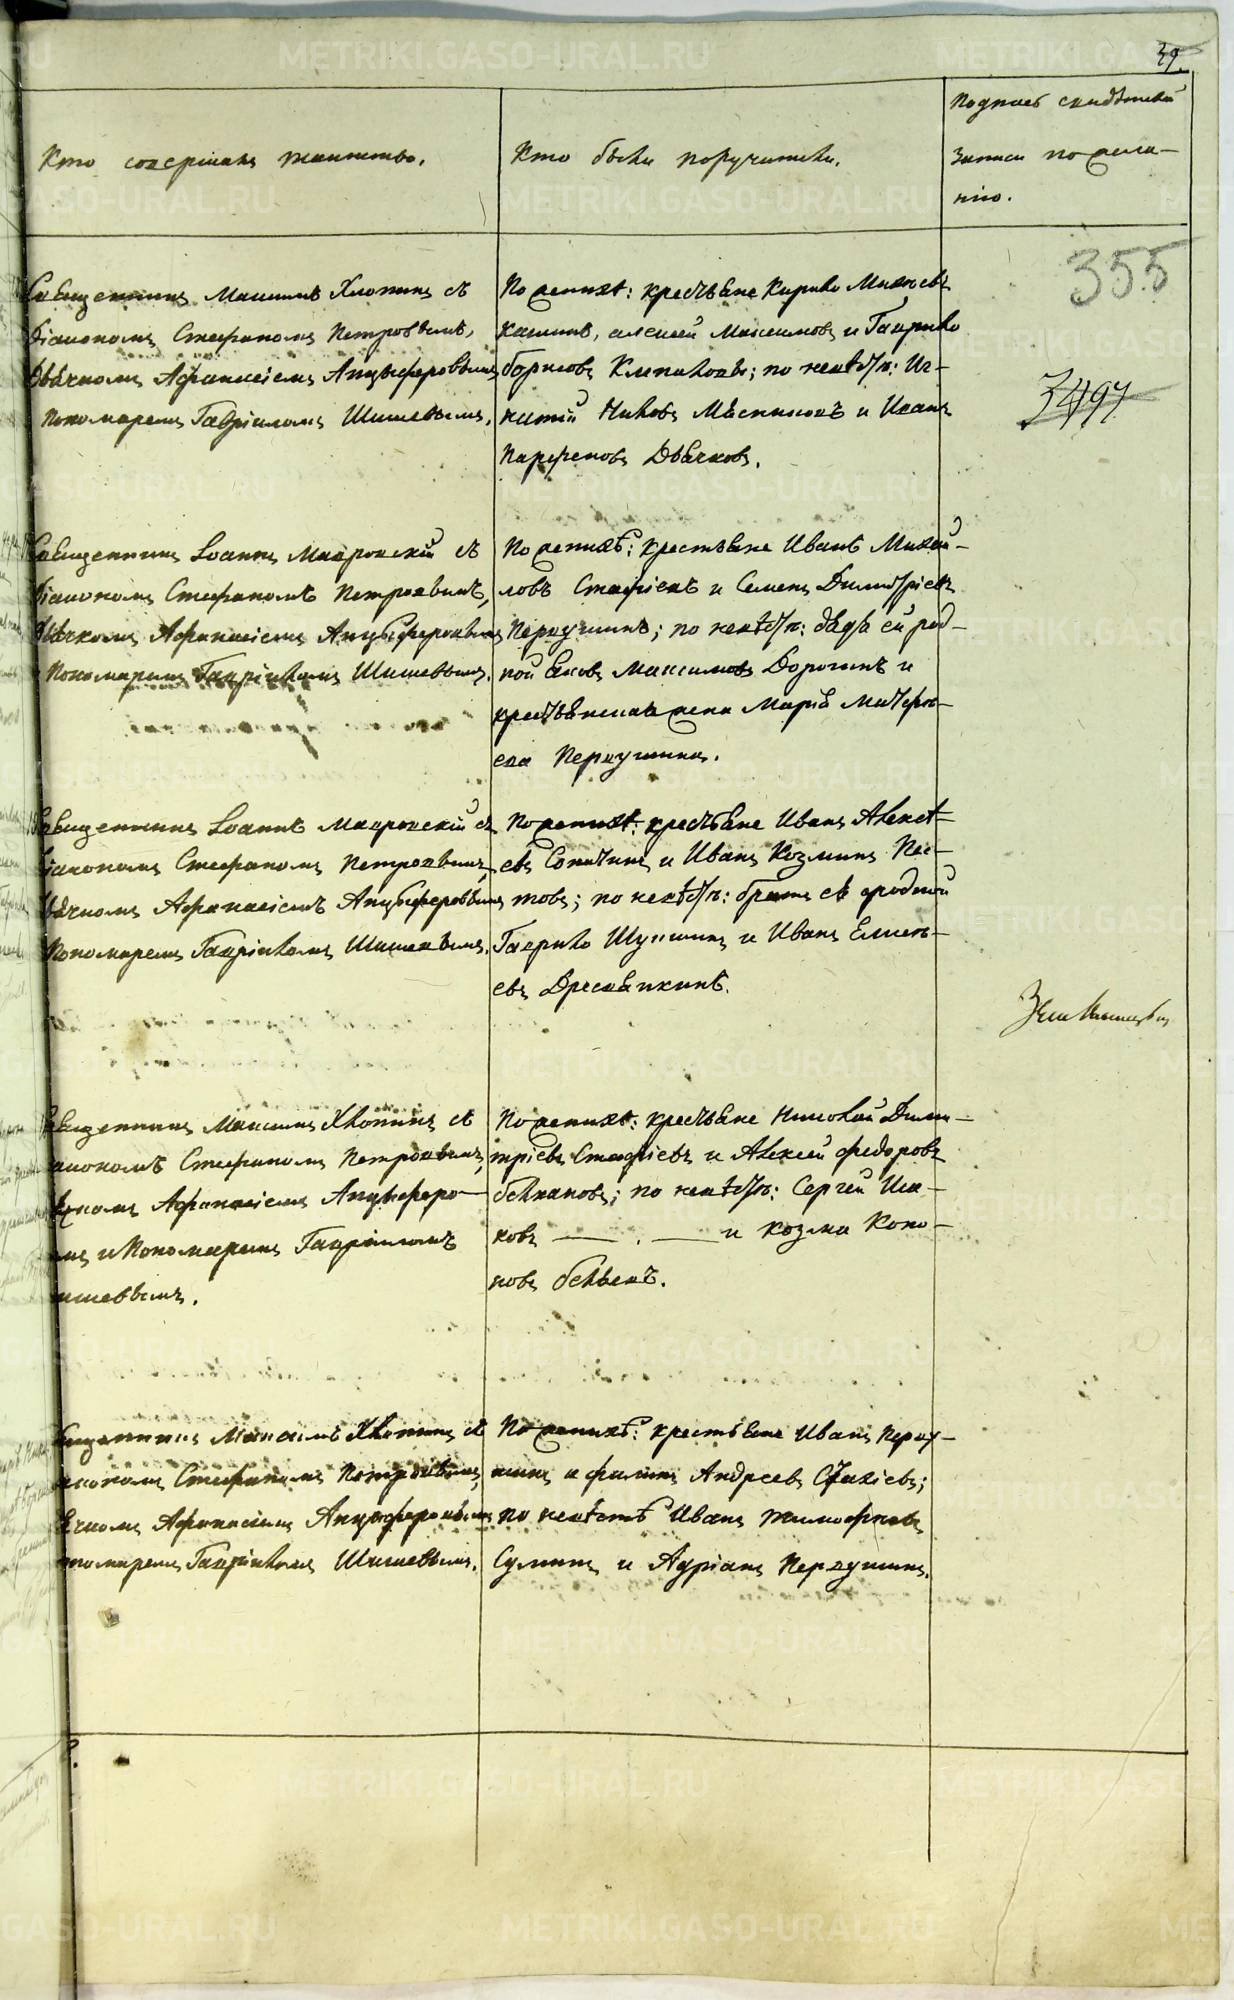 39.
Кто совершалъ таинство.
Кто были поручители.
Подпись свидѣтелей
записи по жела-
нію.
355
3497
Священникъ Максимъ Хлопинъ съ
діакономъ Стефаномъ Петровымъ,
дьячкомъ Афанасіемъ Анцыферовымъ
пономаремъ Гавріиломъ Шишевымъ.
По женихѣ: крестьяне Кирило
Кашинъ, алексей Максимовъ и Гаврило
борисовъ Клепиковы; по невѣстѣ: Иг-
натій Мясниковъ и Иванъ
Парфеновъ Дьячковъ.
Священникъ Іоаннъ Мавровскій съ
діакономъ Стефаномъ Петровымъ,
дьячкомъ Афанасіемъ Анцыферовымъ
Пономаремъ Гавріиломъ Шишевымъ.
По женихѣ: крестьяне Иванъ Михай-
ловъ Стафіевъ и Семенъ Димитріевъ
Первушинъ; по невѣстѣ: дядя ей род-
ной Яковъ Максимовъ Дорогинъ и
крестьянская жена Марія Матфѣ-
ева Первушина.
Священникъ Іоаннъ Мавровскій съ
діакономъ Стефаномъ Петровымъ,
дьячкомъ Афанасіемъ Анцыферовымъ
Пономаремъ Гавріиломъ Шишевымъ.
По женихѣ: крестьяне Иванъ Алексѣ-
евъ и Иванъ Козминъ Пес-
товъ; по невѣстѣ: братъ ея родной
Гаврило Шупшинъ и Иванъ Елисѣ-
евъ Дресвянкинъ.
Священникъ Максимъ Хлопинъ съ
діакономъ Стефаномъ Петровымъ,
дьячкомъ Афанасіемъ Анцыферо-
вымъ и Пономаремъ Гавріиломъ
Шишевымъ.
По женихѣ: крестьяне Николай Дими-
тріевъ Стафіевъ и Алексей федоровъ
бѣлканов; по невѣстѣ: Сергей Иса-
ковъ — . — и козма Коно-
новъ
Священникъ Максимъ Хлопинъ съ
діакономъ Стефаномъ Петровымъ,
дьячкомъ Афанасіемъ Анцыферовымъ
пономаремъ Гавріиломъ Шишевымъ.
По женихѣ: крестьяне Иванъ Перву-
шинъ и филипъ Андреевъ Стахіевъ;
по невѣстѣ Иванъ тимофѣевъ
Сулинъ и Адріанъ Первушинъ.
METRIKI.GASO-URAL.RU